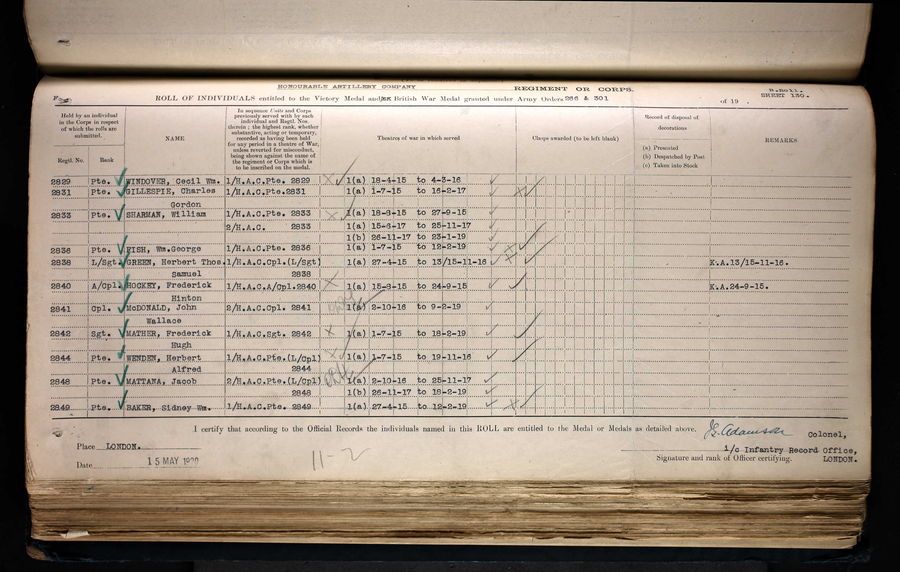 HONOURABLE ARTILLERY COMPANY REGIMENT OR CORPS.
B.Roll.
SHEET 130.
ROLL OF INDIVIDUALS entitled to the Victory Medal and British War Medal granted under Army Orders 266 & 301 of 19 .
Held by an individual in the Corps in respect of which the rolls are submitted.
Regtl. No. Rank
NAME
In sequence Units and Corps previously served with by each individual and Regtl. Nos. therein; the highest rank, whether substantive, acting or temporary, recorded as having been held for any period in a theatre of War, unless reverted for misconduct, being shown against the name of the regiment or Corps which is to be inscribed on the medal.
Theatres of war in which served
Clasps awarded (to be left blank)
Record of disposal of decorations
(a) Presented
(b) Despatched by Post
(c) Taken into Stock
REMARKS
2829 Pte. WINDOVER, Cecil Wm. 1/H.A.C.Pte. 2829 1(a) 18-4-15 to 4-3-16
2831 Pte. GILLESPIE, Charles 1/H.A.C.Pte.2831 1(a) 1-7-15 to 16-2-17
Gordon
2833 Pte. SHARMAN, William 1/H.A.C.Pte. 2833 1(a) 18-8-15 to 27-9-15
2/H.A.C. 2833 1(a) 15-6-17 to 25-11-17
1(b) 26-11-17 to 23-1-19
2836 Pte. FISH, Wm.George 1/H.A.C.Pte. 2836 1(a) 1-7-15 to 12-2-19
2838 L/Sgt. GREEN, Herbert Thos. 1/H.A.C.Cpl.(L/Sgt) 1(a) 27-4-15 to 13/15-11-16 K.A.13/15-11-16.
Samuel 2838
2840 A/Cpl. HOCKEY, Frederick 1/H.A.C.A/Cpl.2840 1(a) 15-8-15 to 24-9-15 K.A.24-9-15.
Hinton
2841 Cpl. McDONALD, John 2/H.A.C.Cpl. 2841 1(a) 2-10-16 to 9-2-19
Wallace
2842 Sgt. MATHER, Frederick 1/H.A.C.Sgt. 2842 1(a) 1-7-15 to 18-2-19
Hugh
2844 Pte. WENDEN, Herbert 1/H.A.C.Pte.(L/Cpl) 1(a) 1-7-15 to 19-11-16
Alfred 2844
2848 Pte. MATTANA, Jacob 2/H.A.C.Pte.(L/Cpl) 1(a) 2-10-16 to 25-11-17
2848 1(b) 26-11-17 to 18-2-19
2849 Pte. BAKER, Sidney Wm. 1/H.A.C.Pte. 2849 1(a) 27-4-15 to 12-2-19
I certify that according to the Official Records the individuals named in this ROLL are entitled to the Medal or Medals as detailed above.
Adamson Colonel,
Place LONDON.
i/c Infantry Record Office,
Signature and rank of Officer certifying. LONDON.
Date 15 MAY 1920
11-2